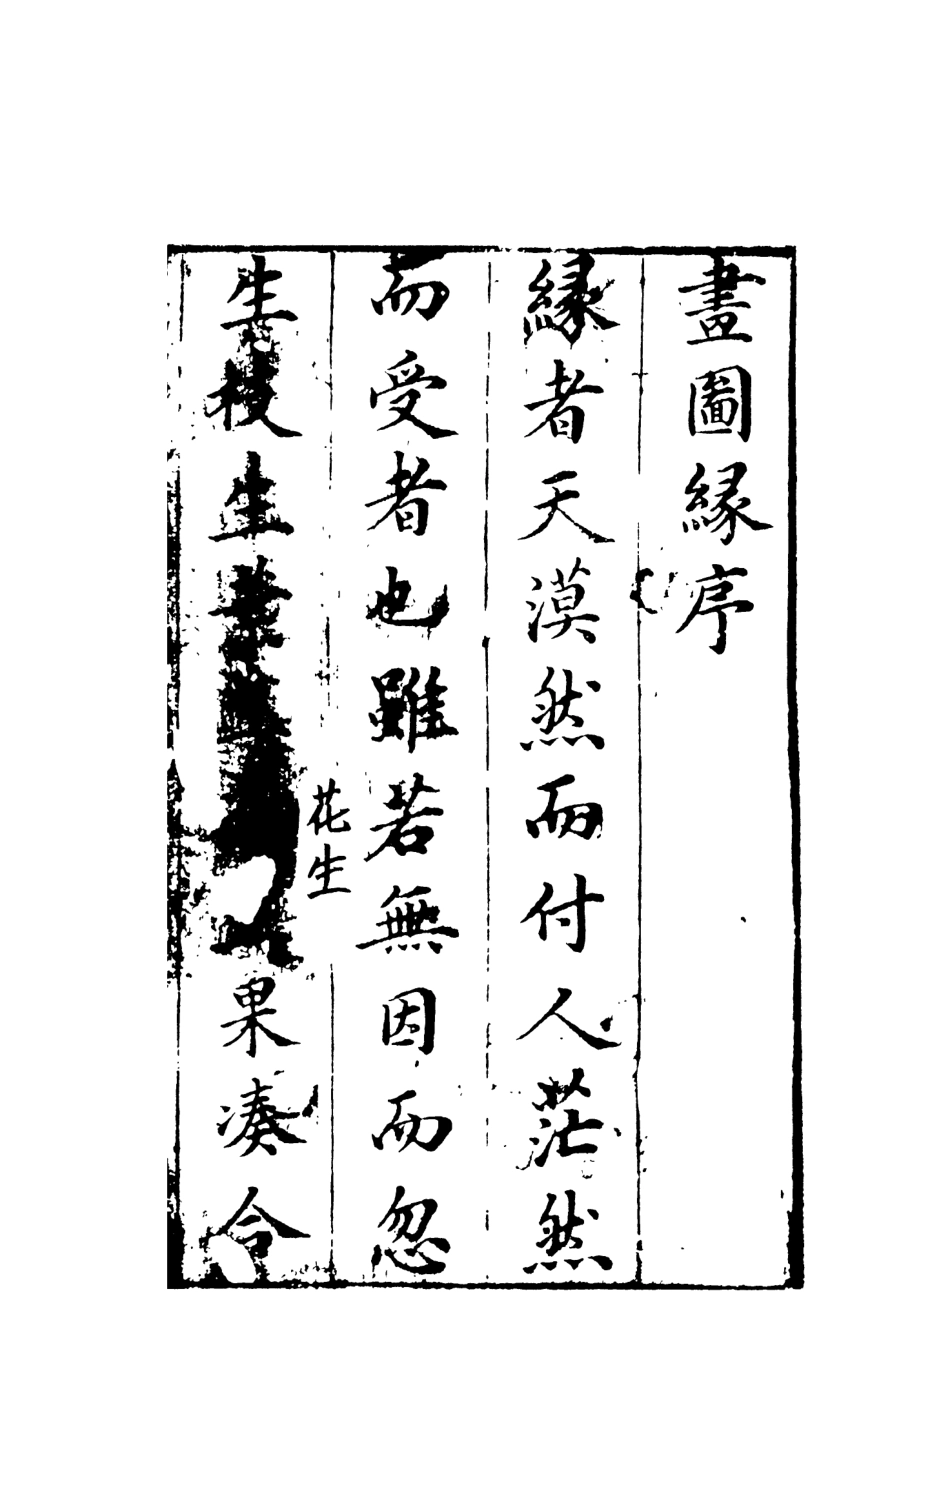 畫圖緣序
緣者天漠然而付人茫然
而受者也雖若無因而忽
生枝生葉生花生果湊合